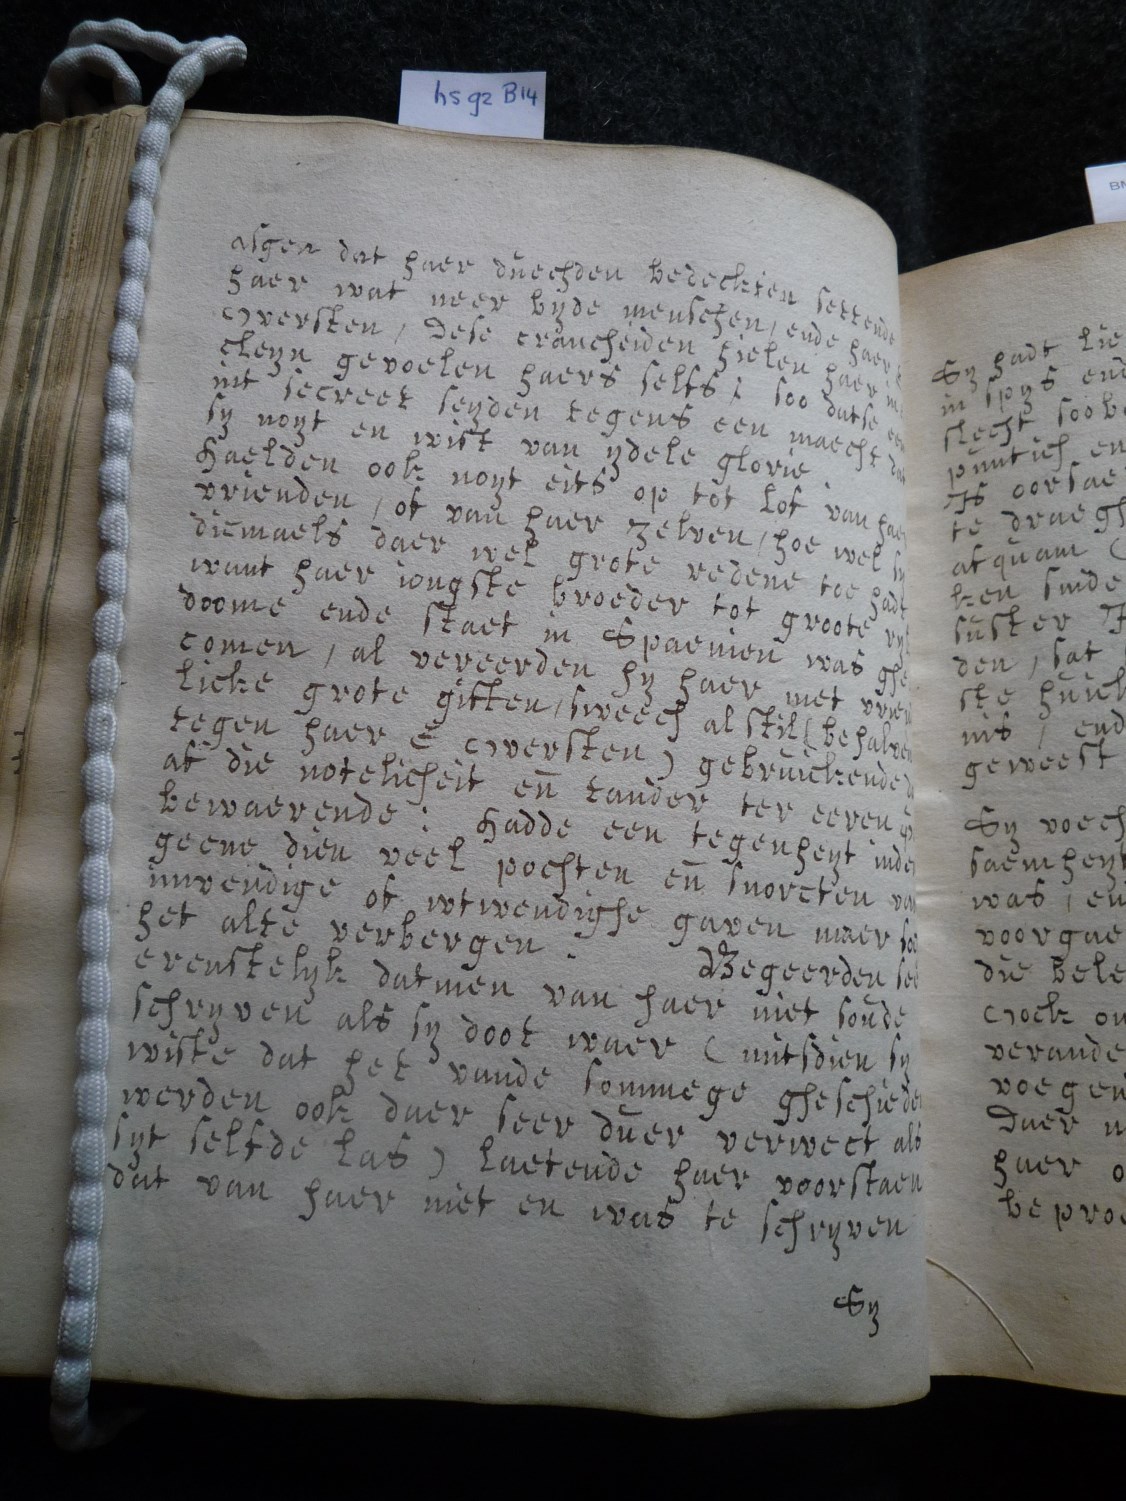 hs 92 B14
dat haer duechden bedeckten settende
haer wat neer byde menschen, ende haer
oversten, Dese crancheiden hielen haer in
cleyn gevoelen haers selfs; soo datse een
int secreet seyden tegens een maecht dat
sy noyt en wist van ydele glorie.
Haelden ook noyt eits op tot Lof van haer
vrienden, of van haer zelven, hoe wel sy
diemaels daer wel grote redene toe hadt
want haer iongste broeder tot groote ryk
doome ende staet in Spaenien was ghe
comen, al vereerden hy haer met vrien
licke grote giften, sweech al stil (behalven
tegen haer E oversten) gebruickende d
af die notelicheit en̄ tander ter eeren
bewaerende: Hadde een tegenheyt inde
geene dien veel pochten en̄ snorcten van
inwendige of wtwendighe gaven maer soe
het alte verbergen. Begeerden seer
erenstelyk datmen van haer niet soude
schryven als sy doot waer (mitsdien sy
wiste dat het vande sommege gheschieden
werden ook daer seer duer verwect als
syt selfde las) laetende haer voorstaen
dat van haer niet en was te schryven
Sy
BN
Sy hadt lie
in spys end
slecht soo
puntich en
oorsae
te draegh
afquam (
ken sinde
suster
den, sat
ste huick
nis, end
geweest
Sy voech
saemheyt
was, en
voorgae
die bele
crock on
verande
voegen
Daer
haer o
beproe